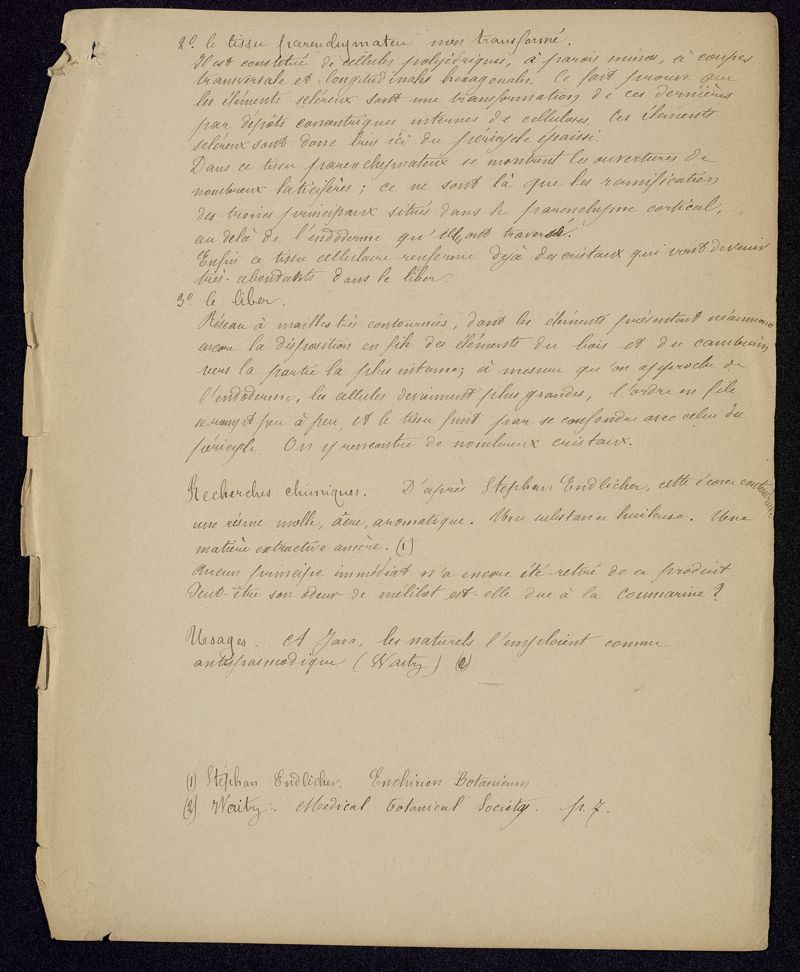 2º le tissu parenchymateu non transformé.
Il est constitué de cellules polyédriques, à parois minces, à coupes
transversale et longitudinales hexagonales. Ce fait prouve que
les éléments scléreux sont une transformation de ces dernières
par dépôts concentriques internes de cellulose. Ces éléments
scléreux sont donc bien ici du péricycle épaissi.
Dans ce tissu parenchymateux se montrent les ouvertures de
nombreux laticifères ; ce ne sont là que les ramification
des troncs principaux situés dans le parenchyme cortical,
au delà de l'endoderme qu'elles ont traversé.
Enfin ce tissu cellulaire renferme déjà des cristaux qui vont devenir
très-abondants dans le liber.
3º le liber.
Réseau à mailles très contournées, dont les éléments présentent néanmoins
encore la disposition en file des éléments du bois et du cambium
vers la partie la plus interne ; à mesure qu'on approche de
l'endoderme, les cellules deviennent plus grandes, l'ordre en file
se rompt peu à peu, et le tissu finit par se confondre avec celui du
péricycle. On y rencontre de nombreux cristaux.
Recherches chimiques. D'après Stephan Endlicher, cette écorce contiendrait
une résine molle, âcre, aromatique. Une substance huileuse. Une
matière extractive amère. (1)
Aucun principe immédiat n'a encore été retiré de ce produit
Peut-être son odeur de mélilot est-elle due à la coumarine ?
Usages. A Java, les naturels l'emploient comme
antispasmodique (Waitz) (2)
(1) Stéphan Endlicher. Enchirion Botanicum
(2) Waitz. Medical botanical Society. p. 7.